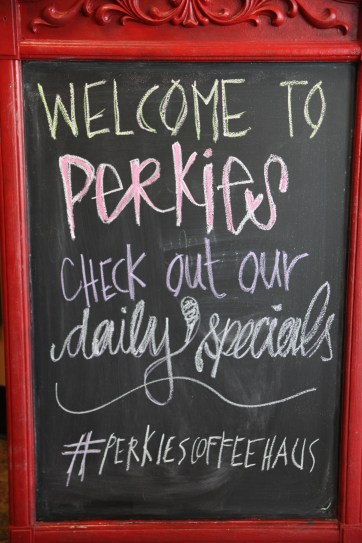 WELCOME TO
PERKiES
CHECK out our
daily specials
#PERKIESCOFFEEHAUS